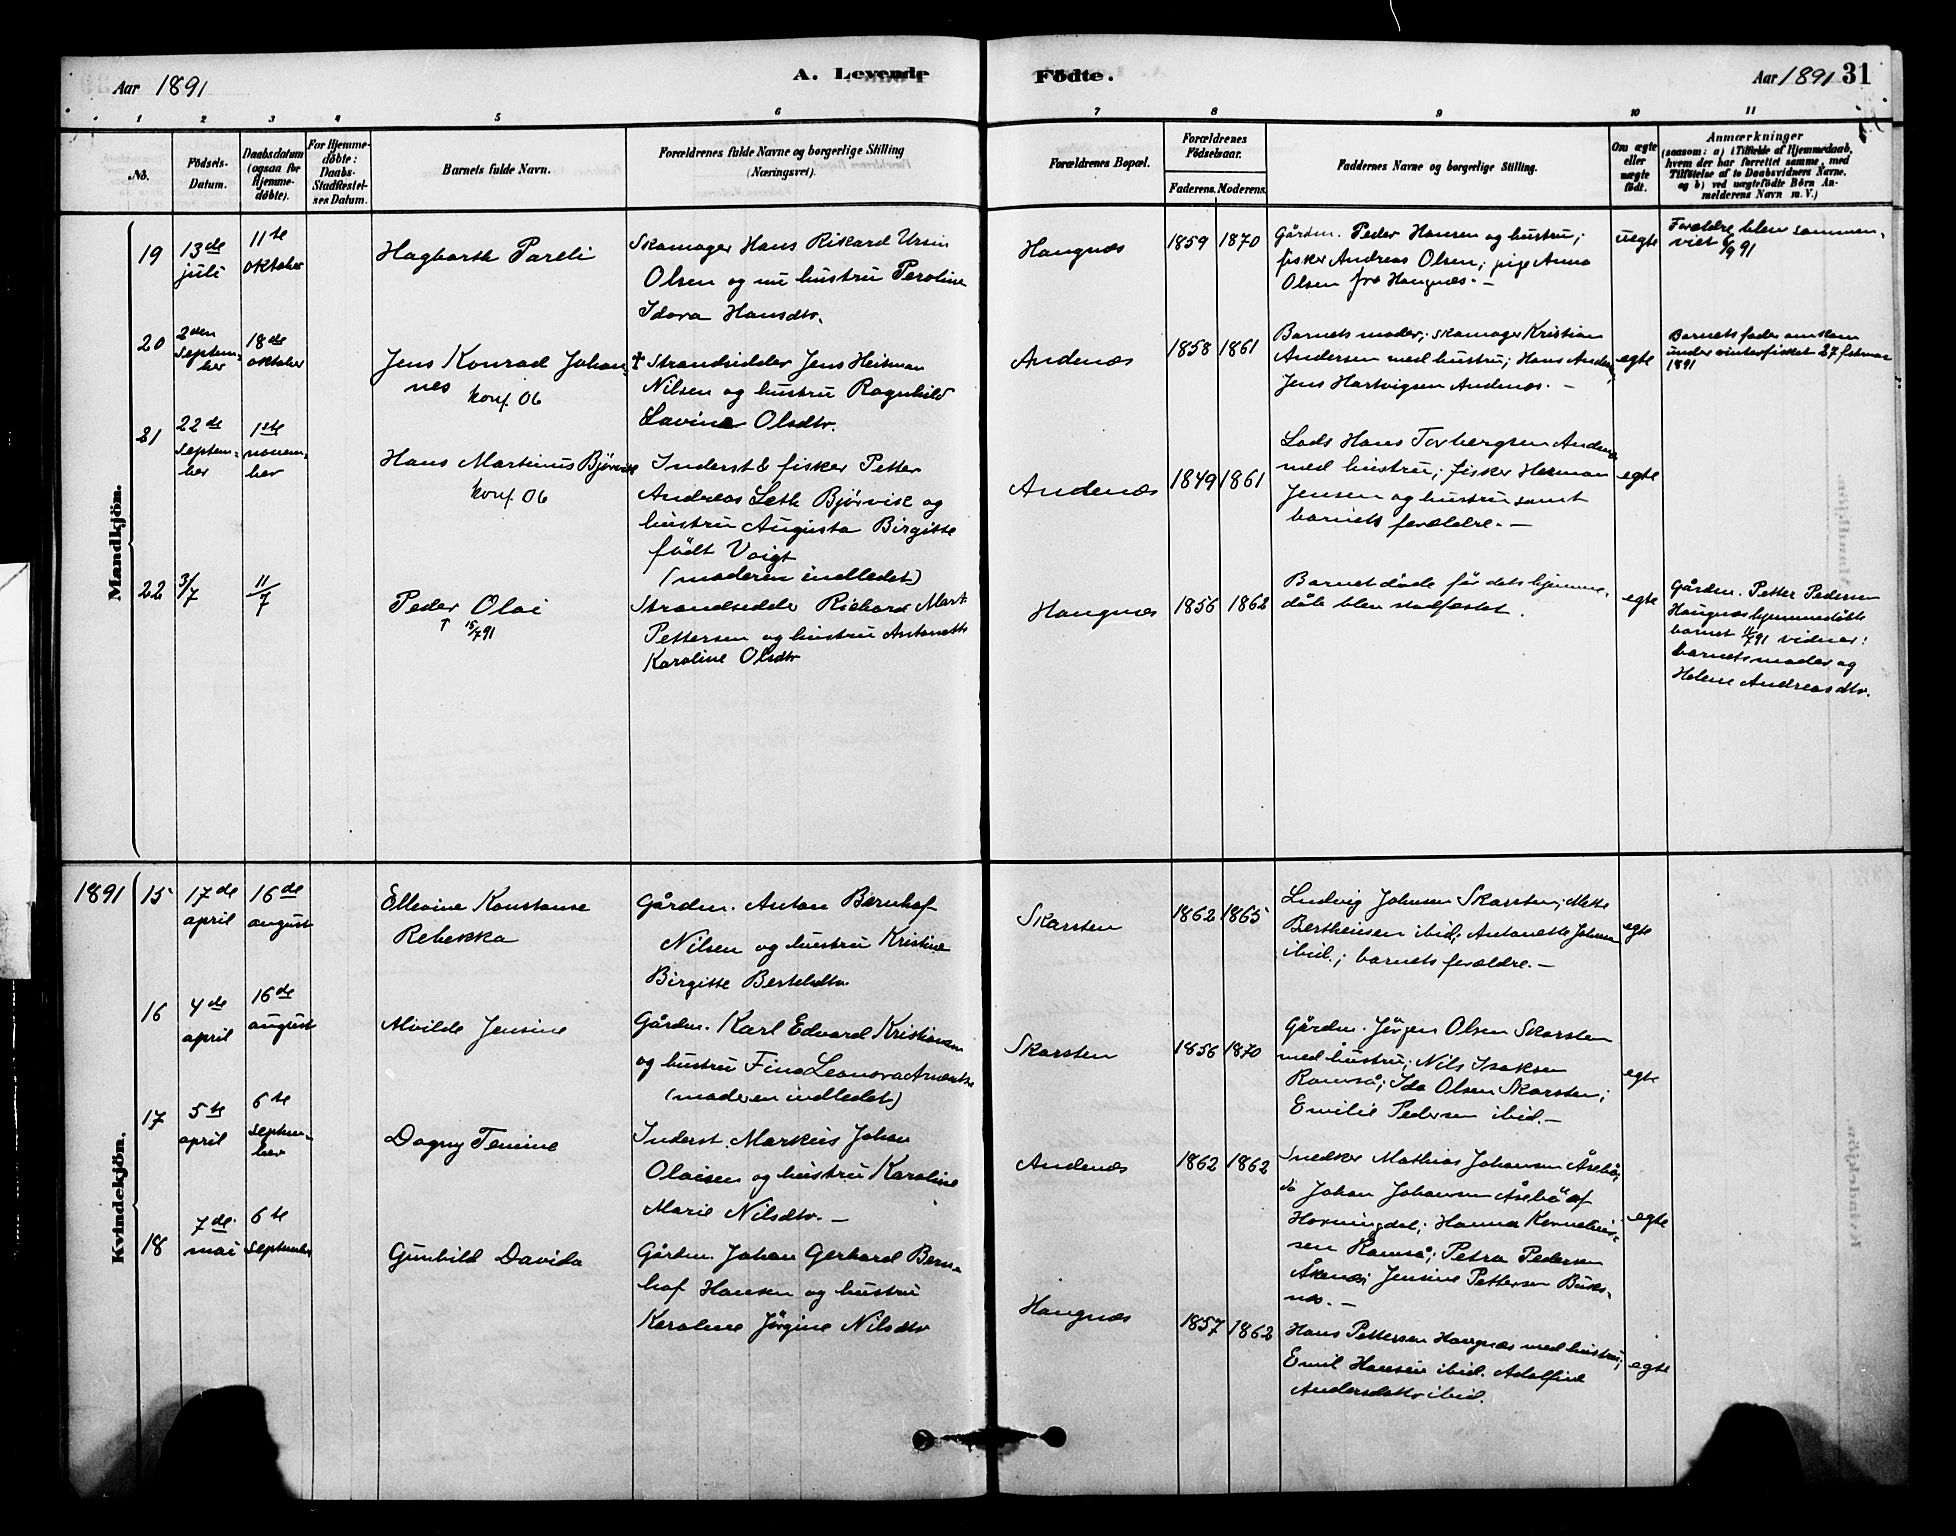 Aar 1891
A. Levende
Födte.
Aar 1891
31
1
2
3
4
5
6
7
8
9
10
11
No.
Födsels-
Datum.
Daabsdatum
(ogsaa for
Hjemme-
døbte).
For Hjemme-
døbte:
Daabs-
Stadfæstel-
ses Datum.
Barnets fulde Navn.
Forældrenes fulde Navne og borgerlige Stilling
(Næringsvei).
Forældrenes Bopæl.
Forældrenes
Födselsaar.
Faderens. Moderens.
Faddernes Navne og borgerlige Stilling.
Om ægte
eller
uægte
födt.
Anmærkninger
(saasom: a) i Tilfælde af Hjemmedaab,
hvem der har forrettet samme, med
Tilföielse af to Daabsvidners Navne,
og b) ved uægtefödte Börn An-
melderens Navn m. V.)
Mandkjön.
19
13de
juli
11te
oktober
Hagbarth Pareli
Skomager Hans Rikard Ursin
Olsen og nu hustru Peroline
Idora Hansdtr.
Haugnæs
1859 1870
Gårdm. Peder Hansen og hustru;
fisker Andreas Olsen; pige Anna
Olsen fra Haugnæs. —
uegte
Forældre blev sammen-
viet 6/9 91
20
2den
Septem-
ber
18de
oktober
Jens Konrad Johan-
nes
konf. 06
† Strandsidder Jens Heitman
Nilsen og hustru Ragnhild
Lavina Olsdtr.
Andenæs
1858 1861
Barnets moder; skomager Kristian
Andersen med hustru; Hans Anders
Jens Hartvigsen Andenæs. —
egte
Barnets fader omkom
under vinterfisket 27 februar
1891
21
22de
Septem-
ber
1ste
novem-
ber
Hans Martinus Bjørvik
konf. 06
Inderst & fisker Petter
Andreas Leth Bjørvik og
hustru Augusta Birgitte
født Voigt
(moderen indledet)
Andenæs
1849 1861
Lods Hans Torbergsen Andenæs
med hustru; fisker Herman
Jensen og hustru samt
barnets forældre. —
egte
22
3/7
11/7
Peder Olai
† 15/7 91
Strandsidder Richard Mart.
Pettersen og hustru Antonette
Karoline Olsdtr
Haugnæs
1856 1862
Barnet døde før dets hjemme-
dåb blev stadfæstet.
egte
Gårdm. Petter Pedersen
Haugnæs hjemmedøbte
barnet 11/7 91 vidner:
barnets moder og
Helene Andreasdtr.
Kvindekjön.
1891
15
17de
april
16de
august
Ellevine Konstanse
Rebekka
Gårdm. Anton Bernhof
Nilsen og hustru Kristine
Birgitte Berteldtr.
Skarsten
1862 1865
Ludvig Johnsen Skarsten; Mette
Bertheusen ibid; Antonette Johnsen
ibid.; barnets forældre. —
egte
16
4de
april
16de
august
Alvilde Jensine
Gårdm. Karl Edvard Kristiansen
og hustru Fina Leonora
(moderen indledet)
Skarsten
1856 1870
Gårdm. Jørgen Olsen Skarsten
med hustru; Nils Isaksen
Ramså; Ida Olsen Skarsten;
Emilie Pedersen ibid. —
egte
17
5te
april
6te
Septem-
ber
Dagny Temine
Inderst. Markus Johan
Olaisen og hustru Karoline
Marie Nilsdtr. —
Andenæs
1862 1862
Snedker Mathias Johansen Åsebø;
do Johan Johansen Åsebø af
Horningdal; Hanna Kornelius-
sen Ramså; Petra Pedersen
Åkenæs; Jensine Pettersen Buks-
næs. —
egte
18
7de
mai
6te
September
Gunhild Davida
Gårdm. Johan Gerhard Bern-
hof Hansen og hustru
Karoline Jørgine Nilsdtr
Haugnæs
1857 1862
Hans Pettersen Haugnæs med hustru;
Emil Hansen ibid. Adolfine
Andersdatter ibid.
egte